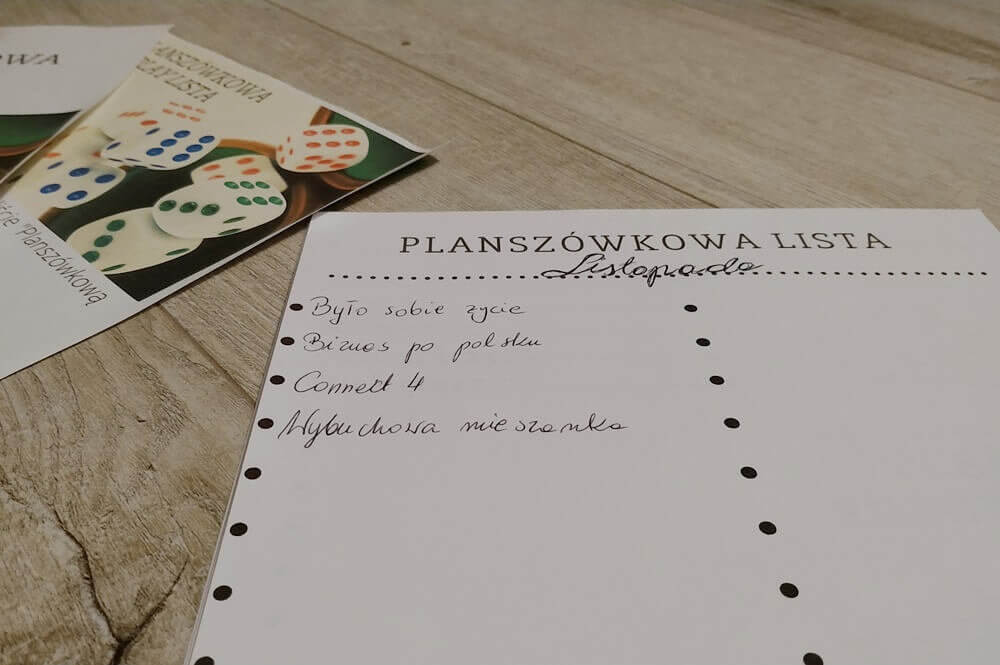 OWA
PLANSZÓWKOWA
PLAYLISTA
"Planszówkową
PLANSZÓWKOWA LISTA
Listopada
Było sobie życie
Biznes po polsku
Connect 4
Wybuchowa mieszanka